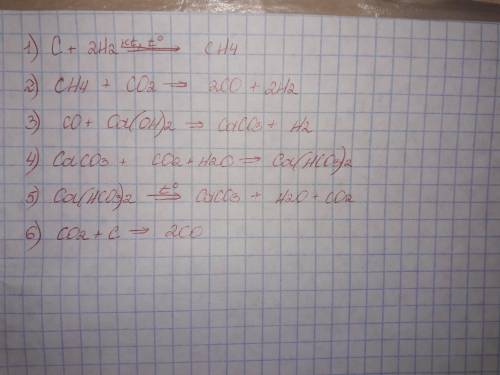 1) C + 2H2 kt, t° ⟹ CH4
2) CH4 + CO2 ⟹ 2CO + 2H2
3) CO + Ca(OH)2 ⟹ CaCO3 + H2
4) CaCO3 + CO2 + H2O ⟹ Ca(HCO3)2
5) Ca(HCO3)2 t° ⟹ CaCO3 + H2O + CO2
6) CO2 + C ⟹ 2CO